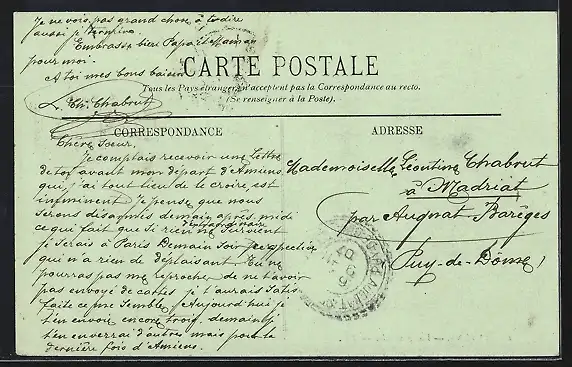 Je ne vois pas grand chose à te dire
aussi je termine.
Embrasse bien Papa et Maman
pour moi.
A toi mes bons baisers
Th. Chabout
CARTE POSTALE
Tous les Pays étrangers n'acceptent pas la Correspondance au recto.
(Se renseigner à la Poste).
CORRESPONDANCE
Chère Sœur,
Je comptais recevoir une lettre
de toi avant mon départ d'Amiens
qui, j'ai tout lieu de le croire, est
imminent. Je pense que nous
serons désarmés demain après midi
ce qui fait que si rien ne survient
je serais à Paris Demain soir perspective
qui n'a rien de déplaisant. Tu ne
pourras pas me reprocher de ne t'avoir
pas envoyé de cartes je t'aurais satis-
faite ce me semble. Aujourd'hui je
t'en envoie encore trois, demain je
t'en enverrai d'autres mais pour la
dernière fois d'Amiens.
ADRESSE
Mademoiselle Léontine Chabout
à Madriat
par Augnat Barèges
Puy-de-Dôme